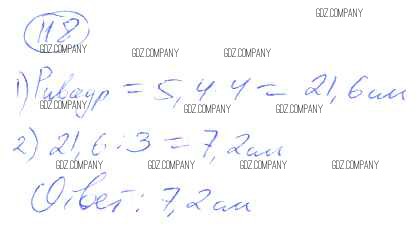 GDZ.COMPANY
118
GDZ.COMPANY GDZ.COMPANY GDZ.COMPANY
1) Pквадр = 5,4·4 = 21,6 см
GDZ.COMPANY GDZ.COMPANY GDZ.COMPANY
2) 21,6 : 3 = 7,2 см
GDZ.COMPANY GDZ.COMPANY GDZ.COMPANY GDZ.COMPANY
Ответ: 7,2 см